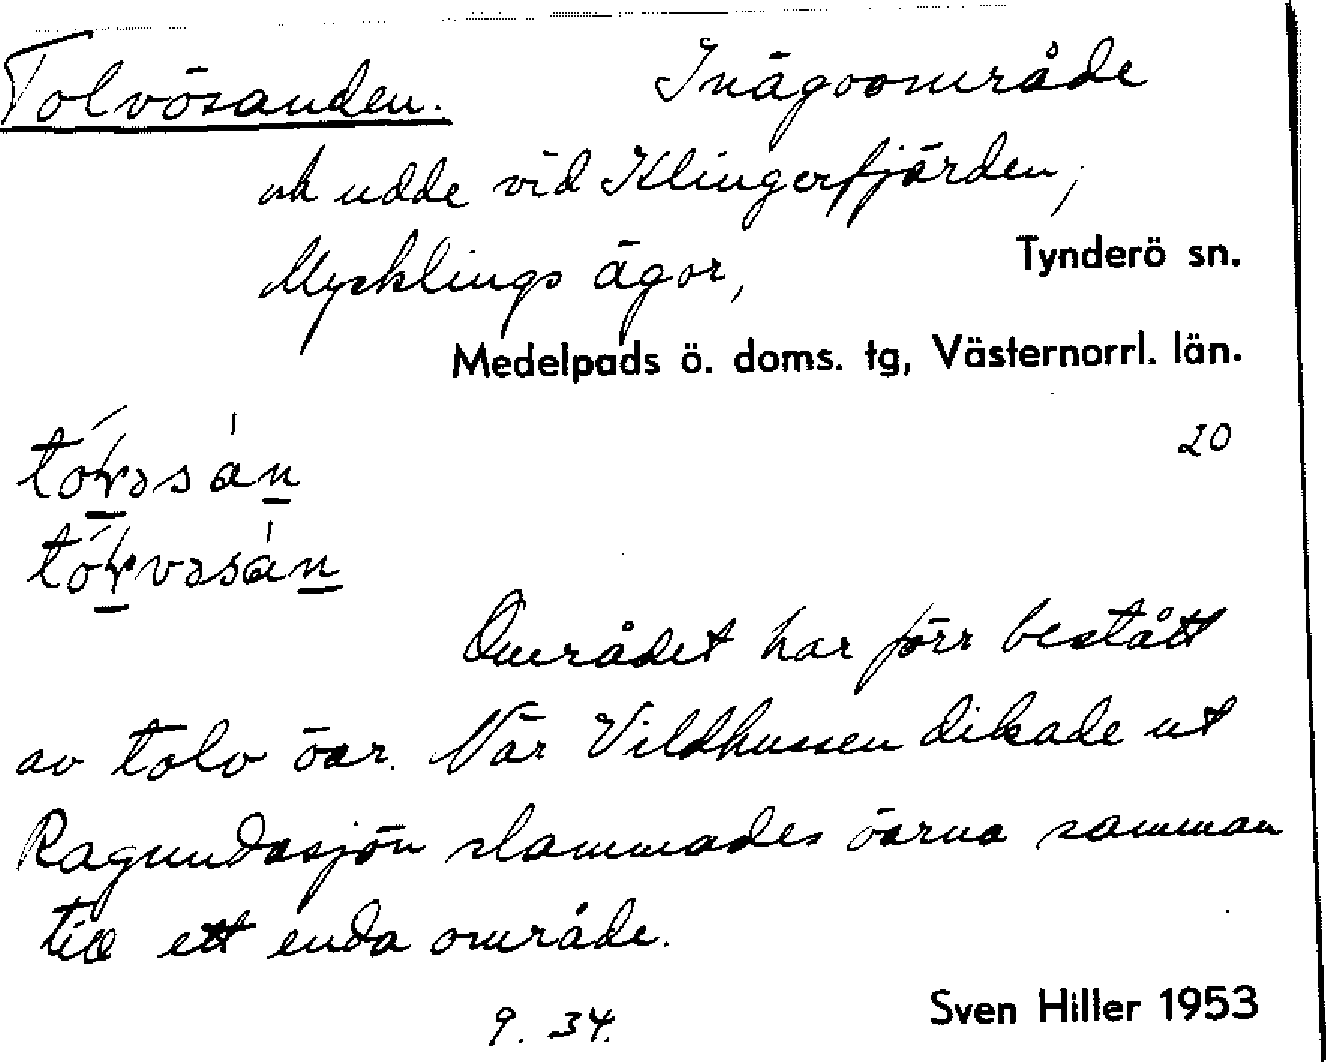 Tolvösanden. Inägoområde
och udde vid Klingerfjärden,
Mycklings ägor,
Tynderö sn.
Medelpads ö. doms. tg, Västernorrl. län.
20
Området har förr bestått
av tolv öar. När Vildhussen dikade ut
Ragundasjön slammades öarna samman
till ett enda område.
9. 34.
Sven Hiller 1953